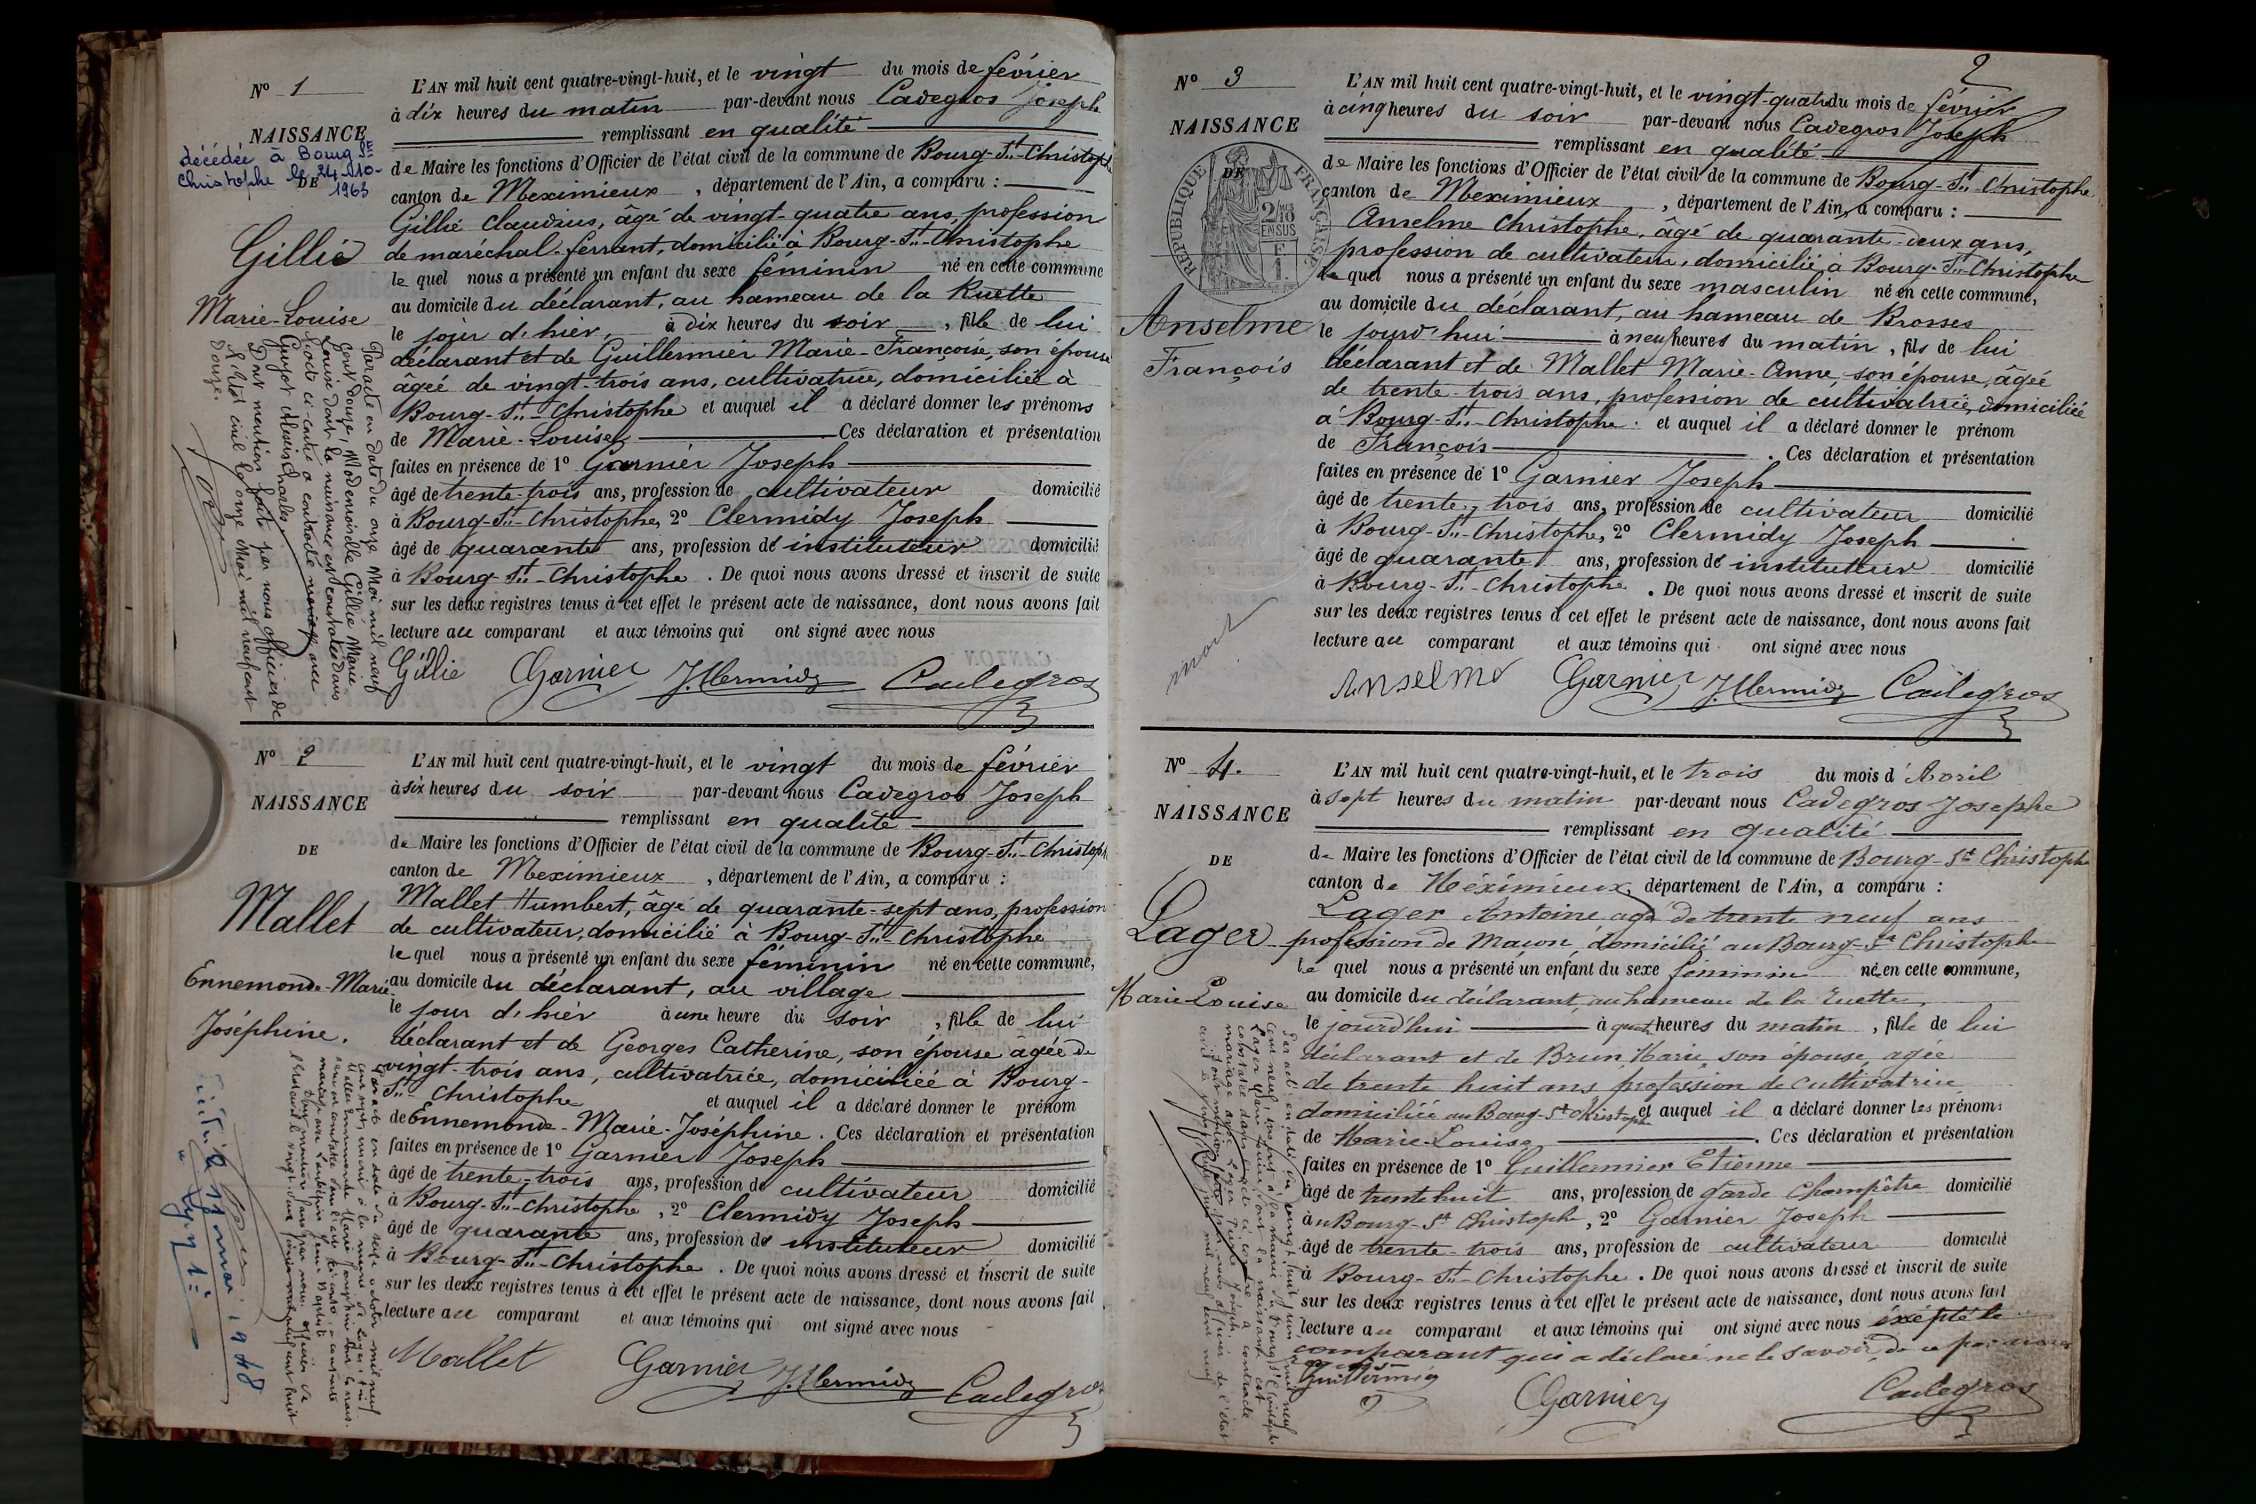 Nº 1
NAISSANCE
DE
décédée à Bourg St
Christophe le 24-10-
1963
Gillié
Marie-Louise
Par acte en date du onze Mai mil neuf
cent douze, Mademoiselle Gillié Marie
Louise dont la naissance est constatée dans
l'acte ci-contre a contracté mariage avec
Guyot Charles
Dont mention faite par nous officier de
l'état civil le onze Mai mil neuf cent
douze.
L'AN mil huit cent quatre-vingt-huit, et le vingt du mois de février
à dix heures du matin par-devant nous Cadegros Joseph
remplissant en qualité
de Maire les fonctions d'Officier de l'état civil de la commune de Bourg-St-Christophe
canton de Meximieux, département de l'Ain, a comparu :
Gillié Claudius, âgé de vingt-quatre ans, profession
de maréchal-ferrant, domicilié à Bourg-St-Christophe
le quel nous a présenté un enfant du sexe féminin né en cette commune
au domicile du déclarant, au hameau de la Ruette
le jour d'hier, à dix heures du soir, fille de lui
déclarant et de Guillermier Marie-Françoise, son épouse
âgée de vingt-trois ans, cultivatrice, domiciliée à
Bourg-St-Christophe et auquel il a déclaré donner les prénoms
de Marie-Louise, Ces déclaration et présentation
faites en présence de 1º Garnier Joseph
âgé de trente-trois ans, profession de cultivateur domicilié
à Bourg-St-Christophe, 2º Clermidy Joseph
âgé de quarante ans, profession de instituteur domicilié
à Bourg-St-Christophe. De quoi nous avons dressé et inscrit de suite
sur les deux registres tenus à cet effet le présent acte de naissance, dont nous avons fait
lecture au comparant et aux témoins qui ont signé avec nous
Gillie Garnier J. Clermidy Cadegros
Nº 2
NAISSANCE
DE
Mallet
Ennemonde-Marie
Joséphine.
1948
L'AN mil huit cent quatre-vingt-huit, et le vingt du mois de février
à six heures du soir par-devant nous Cadegros Joseph
remplissant en qualité
de Maire les fonctions d'Officier de l'état civil de la commune de Bourg-St-Christophe
canton de Meximieux, département de l'Ain, a comparu :
Mallet Humbert, âgé de quarante-sept ans, profession
de cultivateur, domicilié à Bourg-St-Christophe
le quel nous a présenté un enfant du sexe féminin né en cette commune,
au domicile du déclarant, au village
le jour d'hier à une heure du soir, fille de lui
déclarant et de Georges Catherine, son épouse âgée de
vingt-trois ans, cultivatrice, domiciliée à Bourg-
St-Christophe et auquel il a déclaré donner le prénom
de Ennemonde-Marie-Joséphine. Ces déclaration et présentation
faites en présence de 1º Garnier Joseph
âgé de trente-trois ans, profession de cultivateur domicilié
à Bourg-St-Christophe, 2º Clermidy Joseph
âgé de quarante ans, profession de instituteur domicilié
à Bourg-St-Christophe. De quoi nous avons dressé et inscrit de suite
sur les deux registres tenus à cet effet le présent acte de naissance, dont nous avons fait
lecture au comparant et aux témoins qui ont signé avec nous
Mallet Garnier J. Clermidy Cadegros
2
Nº 3
NAISSANCE
DE
RÉPUBLIQUE FRANÇAISE
2/10
EN SUS
Anselme
François
mort
L'AN mil huit cent quatre-vingt-huit, et le vingt-quatre du mois de février
à cinq heures du soir par-devant nous Cadegros Joseph
remplissant en qualité
de Maire les fonctions d'Officier de l'état civil de la commune de Bourg-St-Christophe
canton de Meximieux, département de l'Ain, a comparu :
Anselme Christophe, âgé de quarante-deux ans,
profession de cultivateur, domicilié à Bourg-St-Christophe
le quel nous a présenté un enfant du sexe masculin né en cette commune,
au domicile du déclarant, au hameau de Brosses
le jourd'hui à neuf heures du matin, fils de lui
déclarant et de Mallet Marie-Anne, son épouse, âgée
de trente-trois ans, profession de cultivatrice, domiciliée
à Bourg-St-Christophe. et auquel il a déclaré donner le prénom
de François. Ces déclaration et présentation
faites en présence de 1º Garnier Joseph
âgé de trente-trois ans, profession de cultivateur domicilié
à Bourg-St-Christophe, 2º Clermidy Joseph
âgé de quarante ans, profession de instituteur domicilié
à Bourg-St-Christophe. De quoi nous avons dressé et inscrit de suite
sur les deux registres tenus à cet effet le présent acte de naissance, dont nous avons fait
lecture au comparant et aux témoins qui ont signé avec nous
Anselme Garnier J. Clermidy Cadegros
Nº 4.
NAISSANCE
DE
Lager
Marie Louise
L'AN mil huit cent quatre-vingt-huit, et le trois du mois d'Avril
à sept heures du matin par-devant nous Cadegros Josephe
remplissant en qualité
de Maire les fonctions d'Officier de l'état civil de la commune de Bourg-St Christophe
canton de Méximieux, département de l'Ain, a comparu :
Lager Antoine agé de trente neuf ans
profession de Macon, domicilié au Bourg-St Christophe
le quel nous a présenté un enfant du sexe féminin né en cette commune,
au domicile du déclarant, au hameau de la ruette,
le jourd'hui à quatre heures du matin, fille de lui
déclarant et de Brun Marie, son épouse, agée
de trente huit ans profession de cultivatrice
domiciliée au Bourg-St Christophe et auquel il a déclaré donner les prénoms
de Marie-Louise. Ces déclaration et présentation
faites en présence de 1º Guillermier Etienne
âgé de trente huit ans, profession de garde champêtre domicilié
à u Bourg-St Christophe, 2º Garnier Joseph
âgé de trente-trois ans, profession de cultivateur domicilié
à Bourg-St-Christophe. De quoi nous avons dressé et inscrit de suite
sur les deux registres tenus à cet effet le présent acte de naissance, dont nous avons fait
lecture au comparant et aux témoins qui ont signé avec nous éxépté le
comparant qui a déclaré ne le savoir de ce
requis
Guillermier Garnier Cadegros